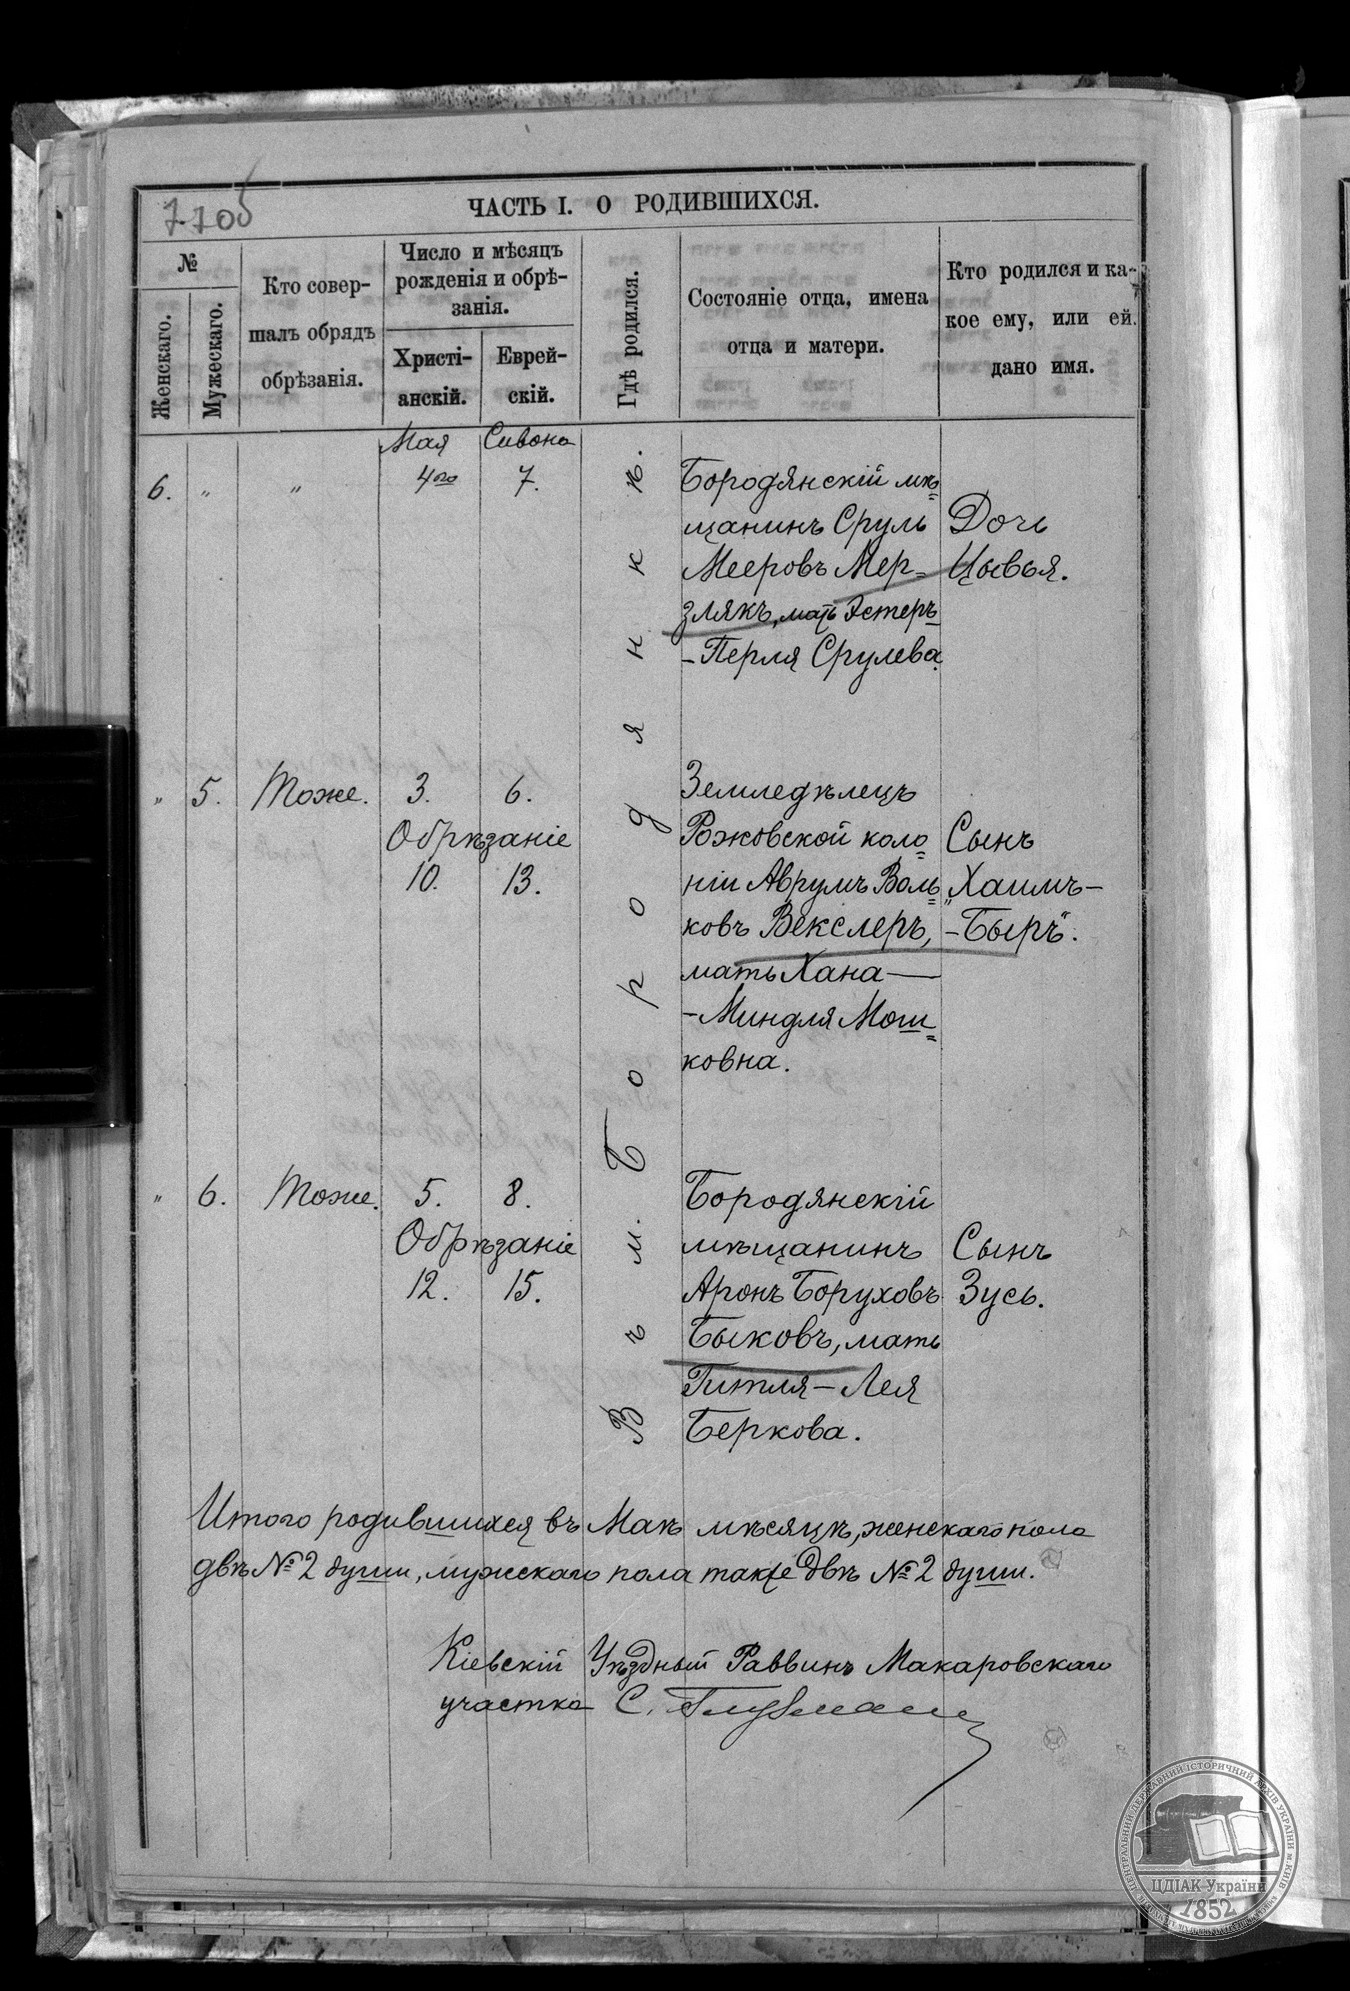 7-10об
ЧАСТЬ I. О РОДИВШИХСЯ.
№
Женскаго.
Мужескаго.
Кто совер-
шалъ обрядъ
обрѣзанія.
Число и мѣсяцъ
рожденія и обрѣ-
занія.
Христі-
анскій.
Еврей-
скій.
Гдѣ родился.
Состояніе отца, имена
отца и матери.
Кто родился и ка-
кое ему, или ей.
дано имя.
Мая Сивона
6. " " 4го 7.
Бородянскій мѣ=
щанинъ Сруль
Мееровъ Мер=
злякъ, мать Эстеръ
-Перля Срулева.
Дочь
Цывья.
Въ м. Бородянкѣ.
" 5. Тоже. 3. 6.
Обрѣзаніе
10. 13.
Земледѣлецъ
Рожовской коло=
ніи Аврумъ Воль=
ковъ Векслеръ,
мать Хана—
-Миндля Мош=
ковна.
Сынъ
„Хаимъ-
-Быръ".
" 6. Тоже. 5. 8.
Обрѣзаніе
12. 15.
Бородянскій
мѣщанинъ
Аронъ Боруховъ
Быковъ, мать
Гитля-Лея
Беркова.
Сынъ
Зусь.
Итого родившихся въ Маѣ мѣсяцѣ, женскаго пола
двѣ № 2 души, мужскаго пола также двѣ № 2 души.
Кіевскій Уѣздный Раввинъ Макаровскаго
участка С.
ЦЕНТРАЛЬНИЙ ДЕРЖАВНИЙ ІСТОРИЧНИЙ АРХІВ УКРАЇНИ м. КИЇВ
ЦДІАК України
1852